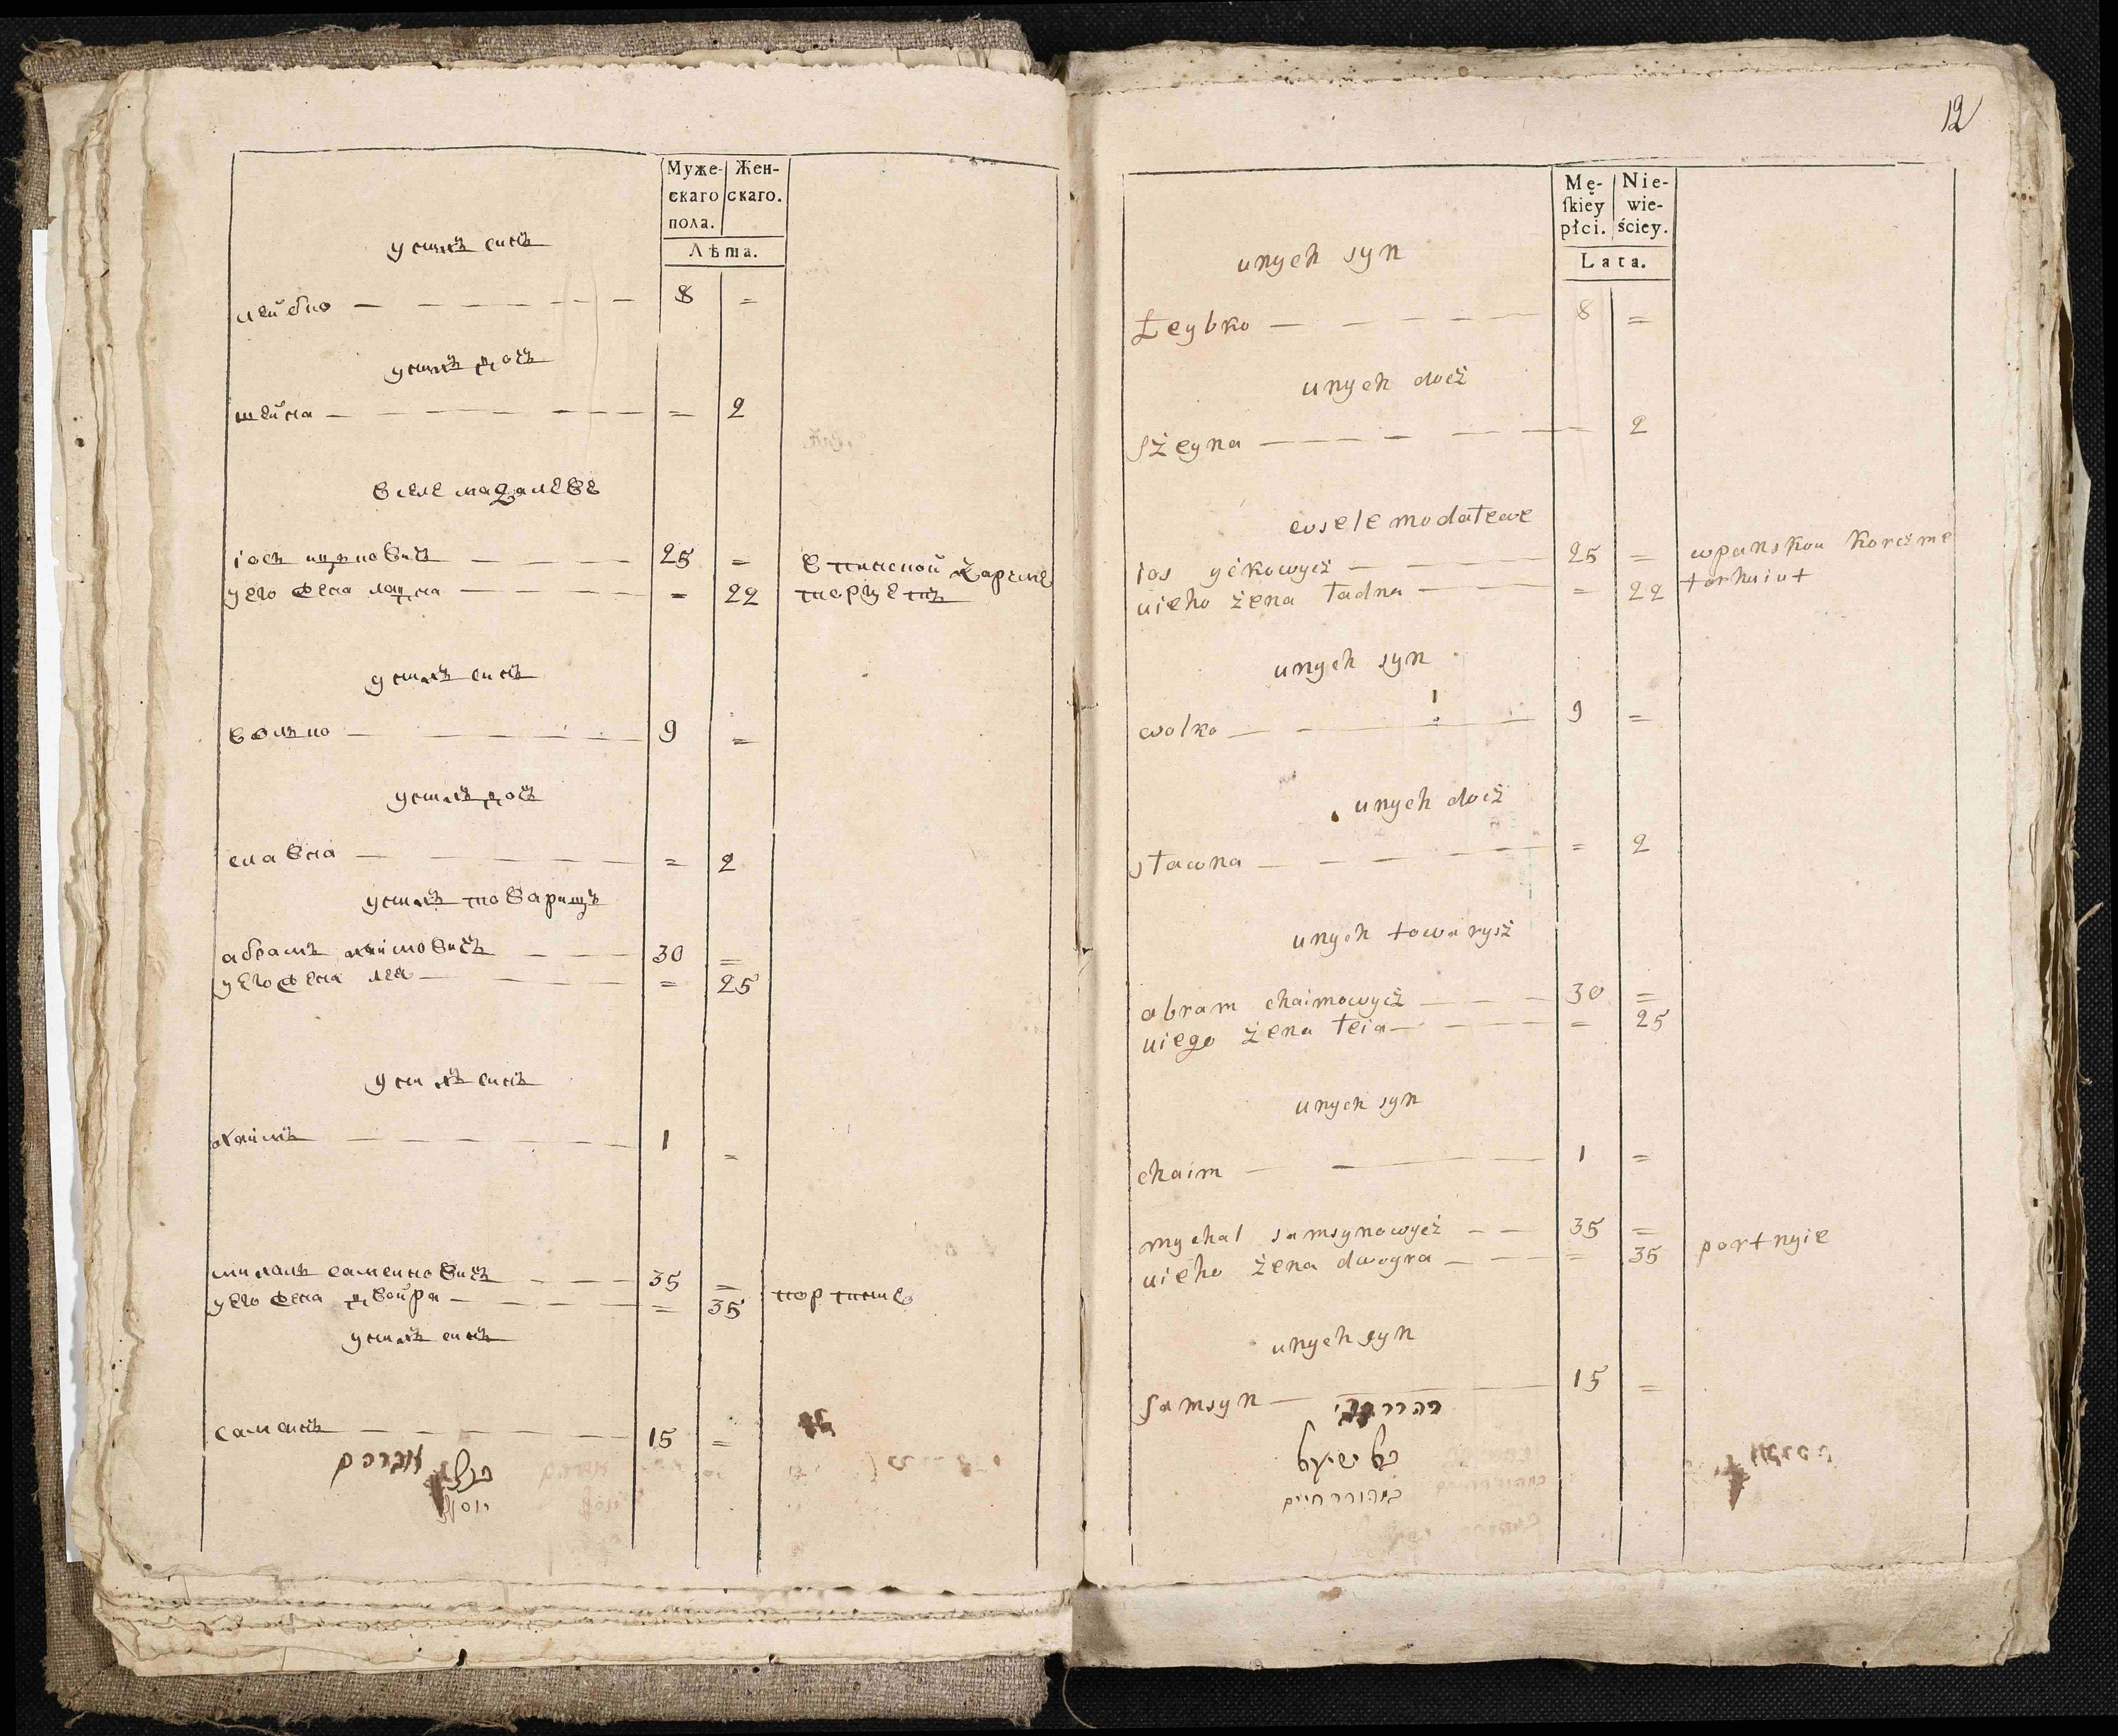 Муже-
скаго
пола.
Жен-
скаго.
Лѣта.
у нихъ синъ
лейбко — 8 =
у нихъ дочъ
шейна — = 2
в селе мадалеве
іосъ ицковичъ — 25 =
у его жена ладна — = 22
у нихъ синъ
волько — 9 =
у нихъ дочъ
славна — = 2
у нихъ товарищъ
абрамъ хаимовичъ — 30 =
у его жена лея — = 25
у нихъ синъ
хаимъ — 1 =
михаль самсиновичъ — 35 =
у его жена двойра — = 35
у нихъ синъ
самсинъ — 15 =
אברהם
יוסף
12
Mę-
ſkiey
płci.
Nie-
wie-
ściey.
Lata.
unych syn
Łeybko — 8 =
unych docż
sżeyna — 2
wsele modałewe
ios yckowycż — 25 = wpanskou korcżme
uieho żena ładna — = 22 torhuiut
unych syn
wolko — 9 =
unych docż
sławna — = 2
unych towarysż
abram chaimowycż — 30 =
uiego żena łeia — = 25
unych syn
chaim — 1 =
mychal samsynowycż — 35 = portnyie
uieho żena dwoyra — = 35
unych syn
samsyn — 15 =